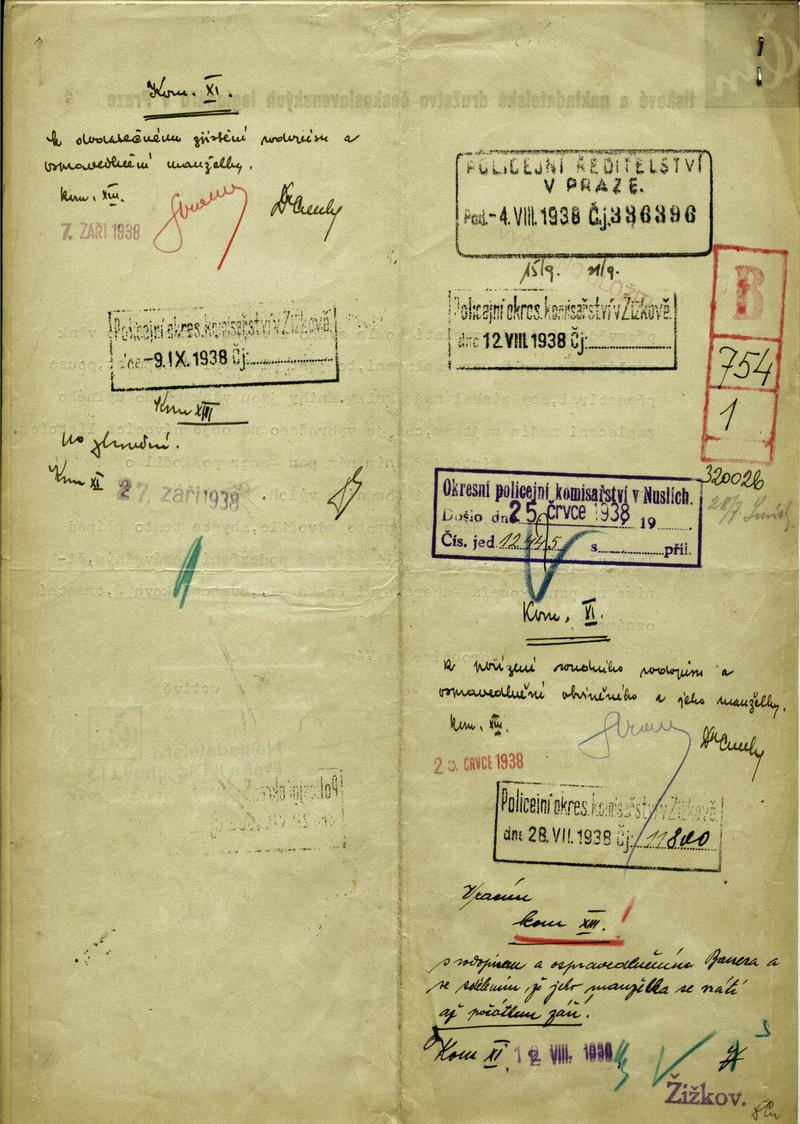 Kom. XI.
k dodatečnému zjištění rodopisu a
ospravedlnění manželky.
kom. XIII.
7. ZÁŘÍ 1938
Policejní okres. komisařství v Žižkově.
dne -9. IX. 1938 Čj:
Kom XIII
po zhlédnutí.
Kom XI
27. září 1938
POLICEJNÍ ŘEDITELSTVÍ
V PRAZE.
Pod. -4. VIII. 1938 Č.j. 336396
15/9. 21/9.
Policejní okres. komisařství v Žižkově.
dne 12. VIII. 1938 Čj:
B
754
1
320026
28/7
Okresní policejní komisařství v Nuslích.
Došlo dne 25. července 1938 19
Čís. jed. 12445 s. příl.
Kom. XI.
k pořízení soudního rodopisu a
ospravedlnění obviněného a jeho manželky.
kom. XIII.
ČRVCE 1938
Policejní okres. komisařství v Žižkově.
dne 28. VII. 1938 Čj: 11800
Vracím
kom XIII.
s rodopisem a ospravedlněním a
se sdělením, že jeho manželka se vrátí
až počátkem září.
Kom XI. 12 VIII. 1938
Žižkov.